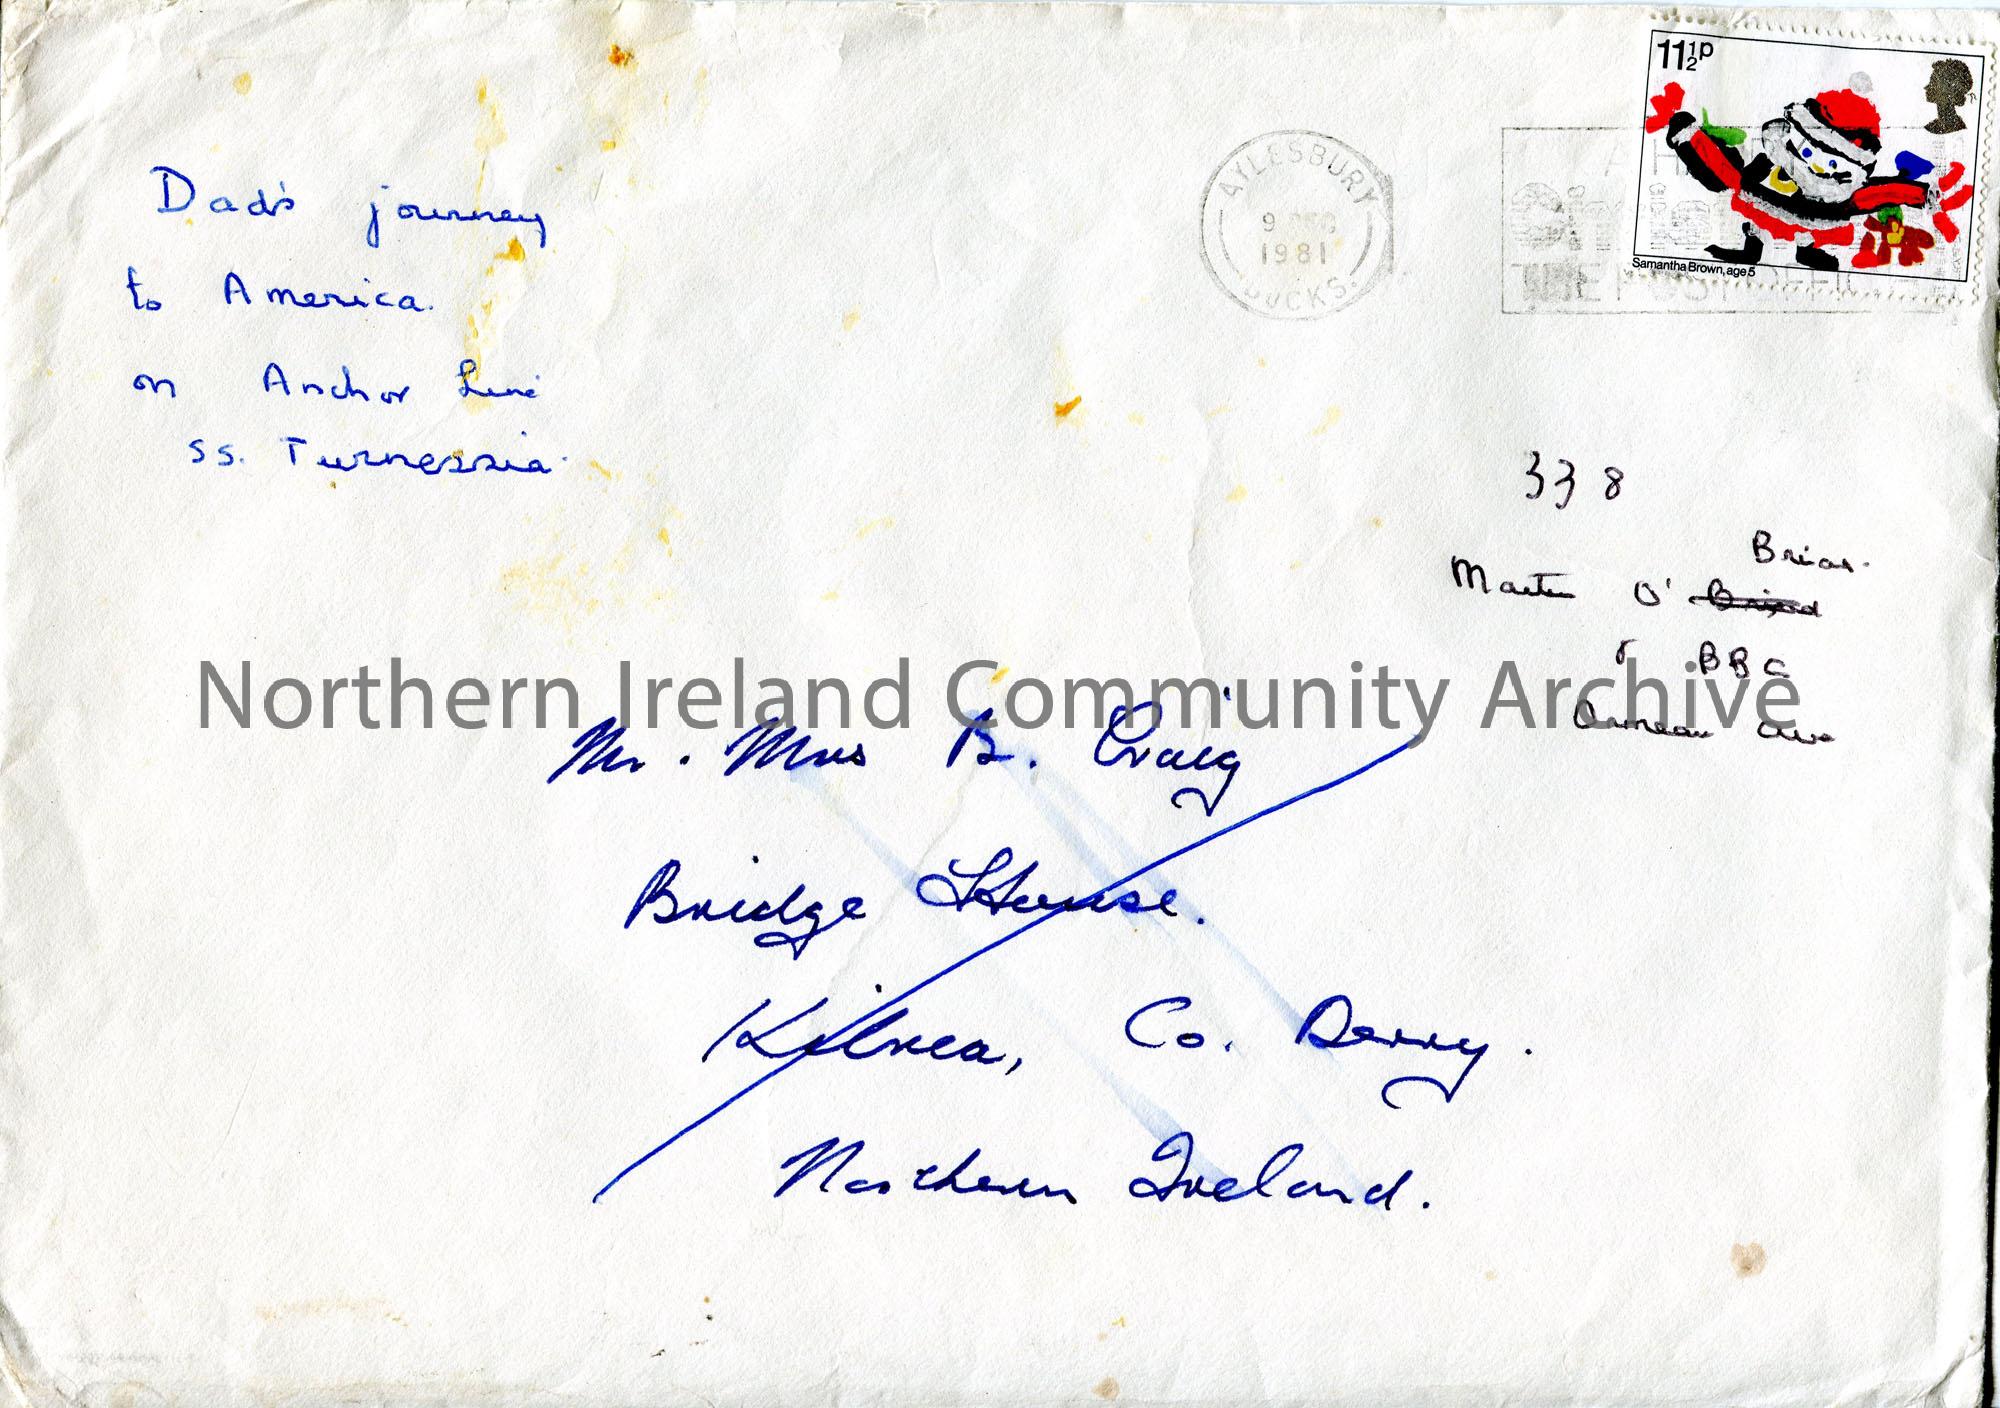 Dad's journey
to America.
on Anchor Line
SS. Turnessia.
AYLESBURY
9 DEC
1981
BUCKS.
11½p
Samantha Brown, age 5
THE POST OFFICE
338
Brian.
Martin O'
BBC
Ave
Northern Ireland Community Archive
Mr. Mrs B. Craig
Bridge House.
Kilrea, Co. Derry.
Northern Ireland.